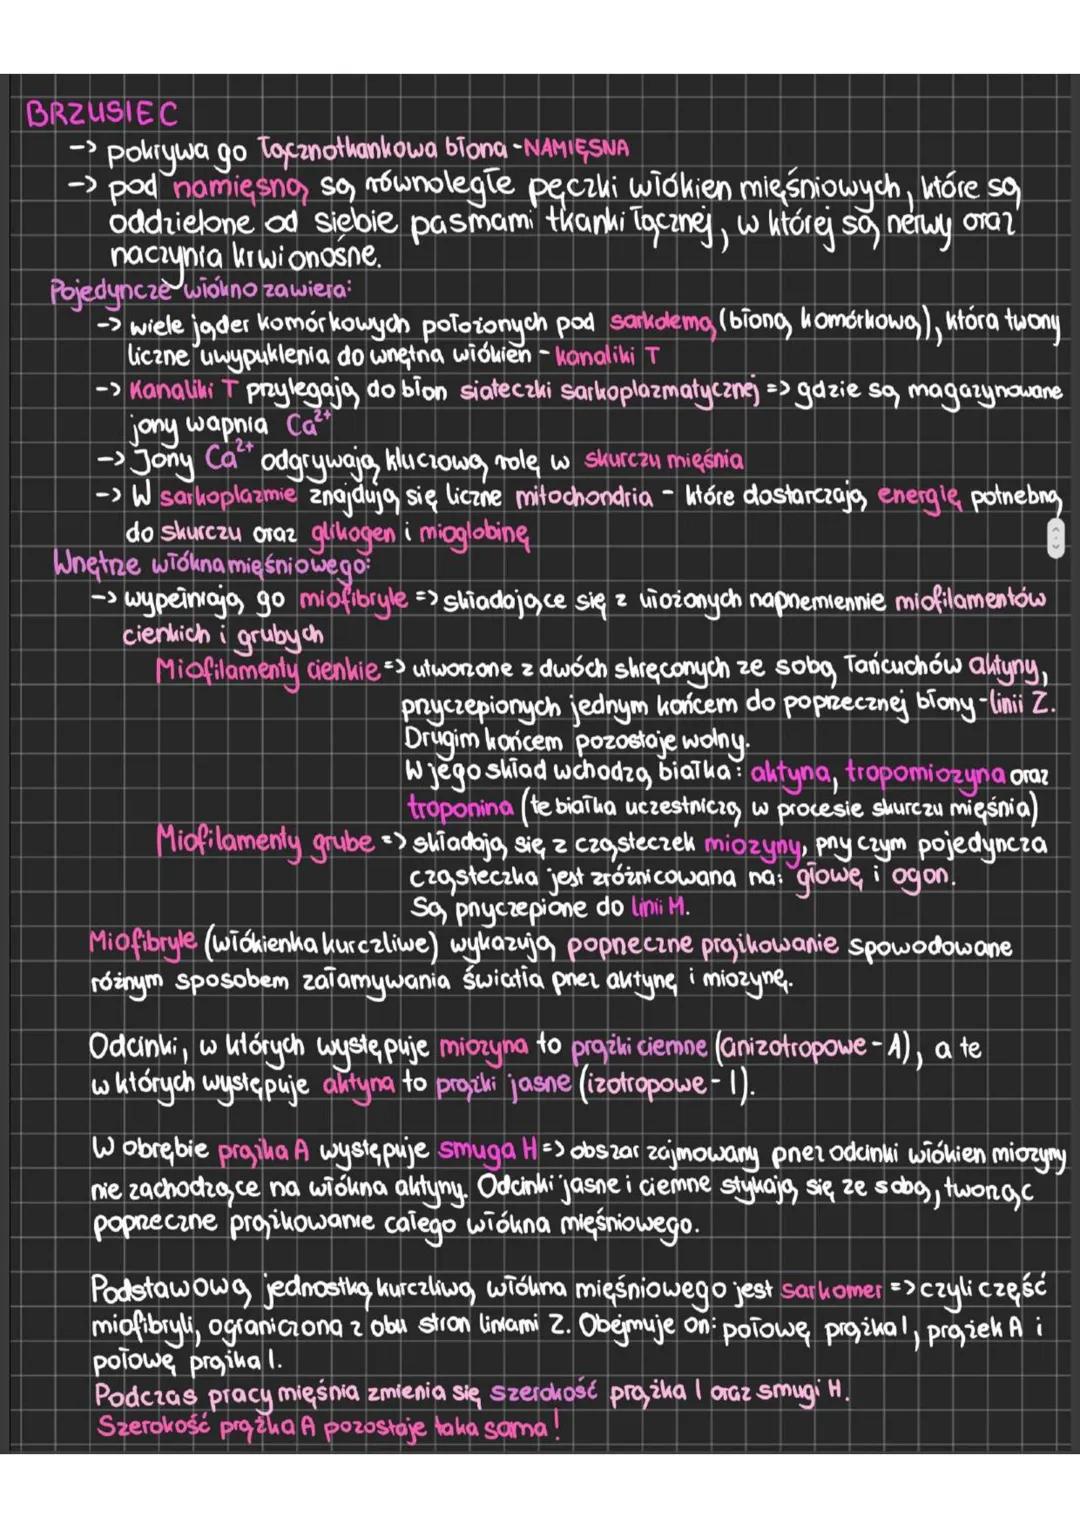 BRZUSIEC
-> pokrywa go łącznotkankowa błona - NAMIĘSNA
-> pod namięsną są równoległe pęczki włókien mięśniowych, które są
oddzielone od siebie pasmami tkanki łącznej, w której są nerwy oraz
naczynia krwionośne.
Pojedyncze włókno zawiera:
-> wiele jąder komórkowych położonych pod sarkolemą (błoną komórkową), która tworzy
liczne uwypuklenia do wnętrza włókien - kanaliki T
-> Kanaliki T przylegają do błon siateczki sarkoplazmatycznej => gdzie są magazynowane
jony wapnia Ca²⁺
-> Jony Ca²⁺ odgrywają kluczową rolę w skurczu mięśnia
-> W sarkoplazmie znajdują się liczne mitochondria - które dostarczają energię potrzebną
do skurczu oraz glikogen i mioglobinę
Wnętrze włókna mięśniowego:
-> wypełniają go miofibryle => składające się z ułożonych naprzemiennie miofilamentów
cienkich i grubych
Miofilamenty cienkie => utworzone z dwóch skręconych ze sobą łańcuchów aktyny,
przyczepionych jednym końcem do poprzecznej błony - linii Z.
Drugim końcem pozostaje wolny.
W jego skład wchodzą białka: aktyna, tropomiozyna oraz
troponina (te białka uczestniczą w procesie skurczu mięśnia)
Miofilamenty grube => składają się z cząsteczek miozyny, przy czym pojedyncza
cząsteczka jest zróżnicowana na: głowę i ogon.
Są przyczepione do linii M.
Miofibryle (włókienka kurczliwe) wykazują poprzeczne prążkowanie spowodowane
różnym sposobem załamywania światła przez aktynę i miozynę.
Odcinki, w których występuje miozyna to prążki ciemne (anizotropowe - A), a te
w których występuje aktyna to prążki jasne (izotropowe - I).
W obrębie prążka A występuje smuga H => obszar zajmowany przez odcinki włókien miozyny
nie zachodzące na włókna aktyny. Odcinki jasne i ciemne stykają się ze sobą, tworząc
poprzeczne prążkowanie całego włókna mięśniowego.
Podstawową jednostką kurczliwą włókna mięśniowego jest sarkomer => czyli część
miofibryli, ograniczona z obu stron liniami Z. Obejmuje on: połowę prążka I, prążek A i
połowę prążka I.
Podczas pracy mięśnia zmienia się szerokość prążka I oraz smugi H.
Szerokość prążka A pozostaje taka sama!